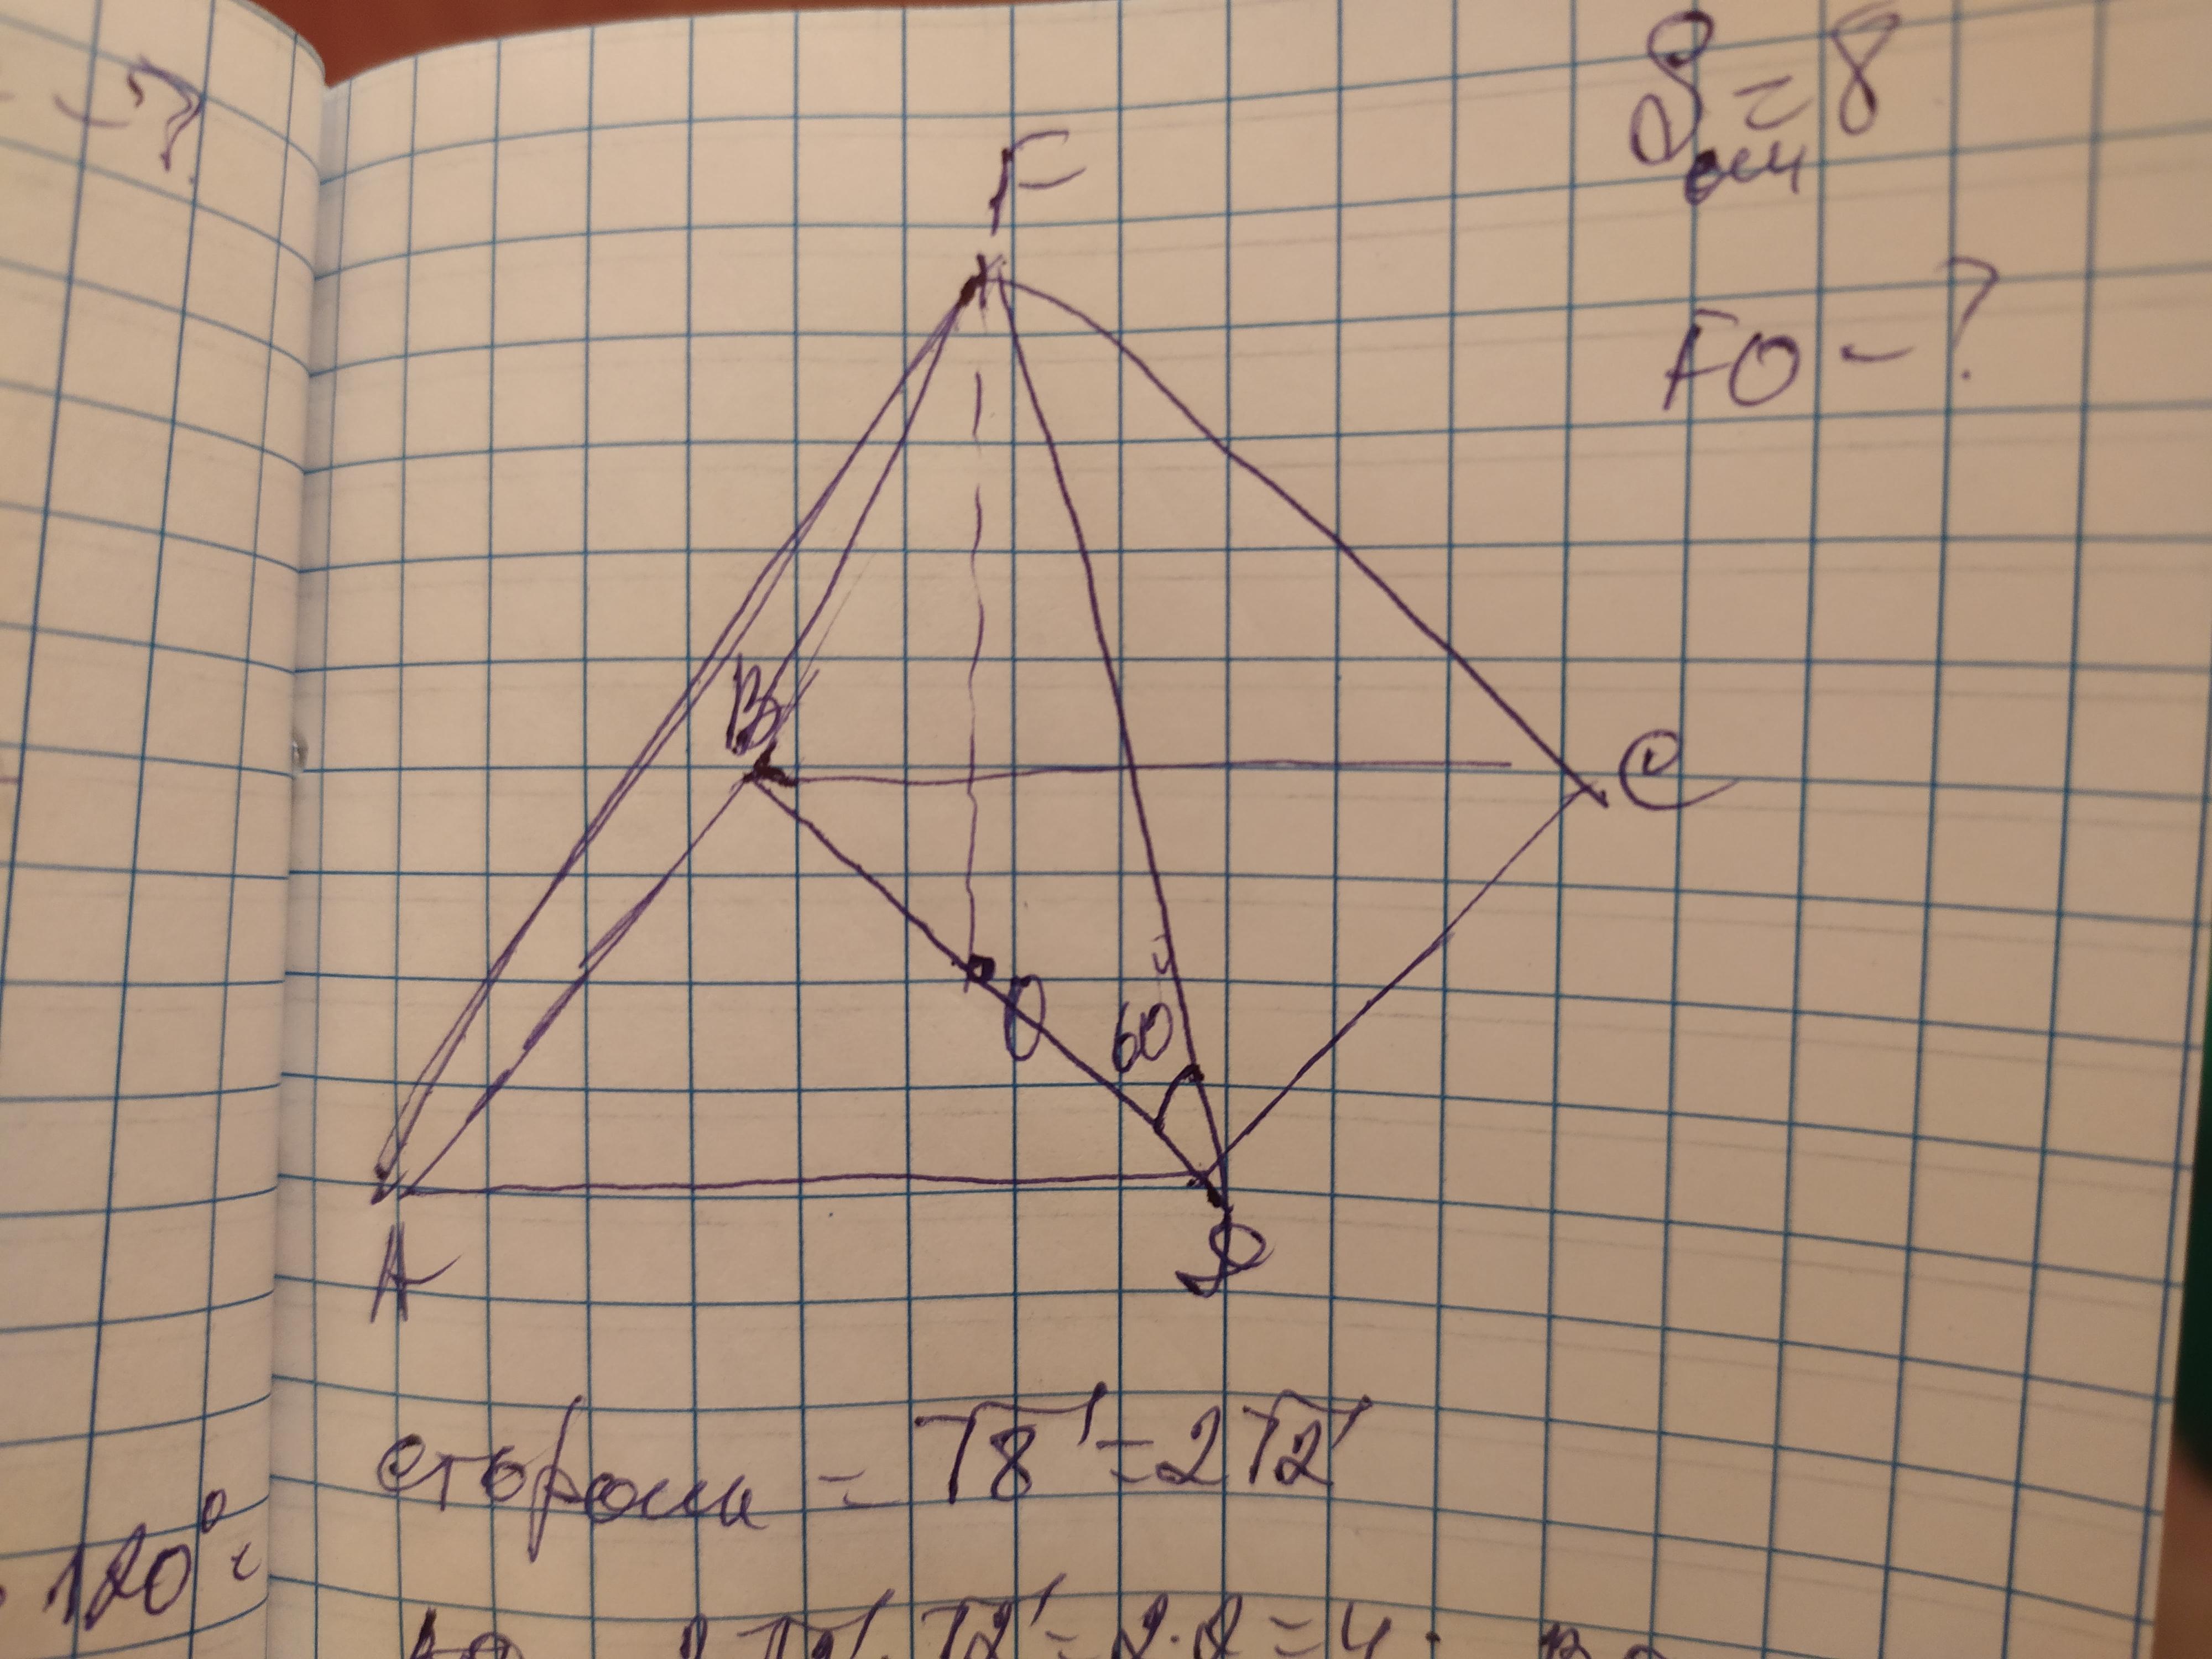 – ?
S осн = 8
F
FO – ?
B
C
O
60
A
D
сторони = √8 = 2√2
120°
2√2 · √2 = 2·2 = 4